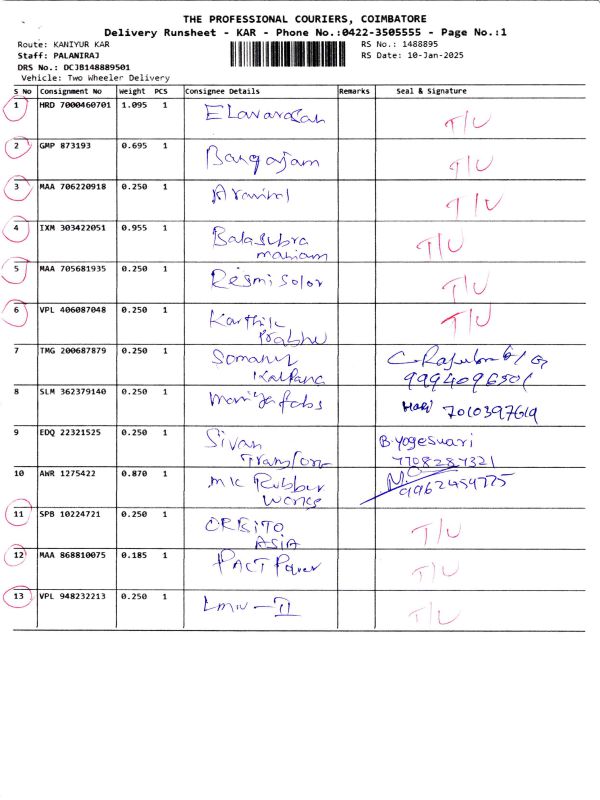 THE PROFESSIONAL COURIERS, COIMBATORE
Delivery Runsheet - KAR - Phone No.:0422-3505555 - Page No.:1
Route: KANIYUR KAR
RS No.: 1488895
Staff: PALANIRAJ
RS Date: 10-Jan-2025
DRS No.: DCJB148889501
Vehicle: Two Wheeler Delivery
S No Consignment No Weight PCS Consignee Details Remarks Seal & Signature
1 HRD 7000460701 1.095 1 Elavarasan T/U
2 GMP 873193 0.695 1 Bangajam T/U
3 MAA 706220918 0.250 1 Aravind T/U
4 IXM 303422051 0.955 1 Balasubra T/U
maniam
5 MAA 705681935 0.250 1 Resmi Solor T/U
6 VPL 406087048 0.250 1 Karthik T/U
Prabhu
7 TMG 200687879 0.250 1
Kalpana 9994096501
8 SLM 362379140 0.250 1 Maniyafabs Hari 7010397619
9 EDQ 22321525 0.250 1 Sivan B.yogeswari
Transfor 7708287321
10 AWR 1275422 0.870 1 MK Rubber
Works 9962489775
11 SPB 10224721 0.250 1 ORBITO T/U
ASIA
12 MAA 868810075 0.185 1 PACT Power T/U
13 VPL 948232213 0.250 1 Lmw - II T/U